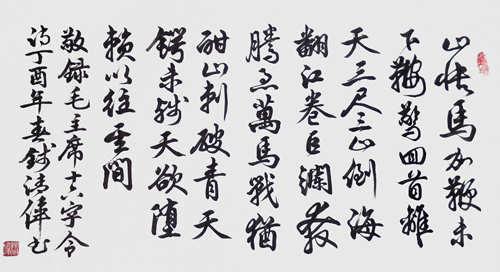 山快馬加鞭未
下鞍驚回首離
天三尺三山倒海
翻江卷巨瀾奔
騰急萬馬戰猶
酣山刺破青天
鍔未殘天欲墮
賴以拄其間
敬録毛主席十六字令
詩丁酉年春錢清偉书